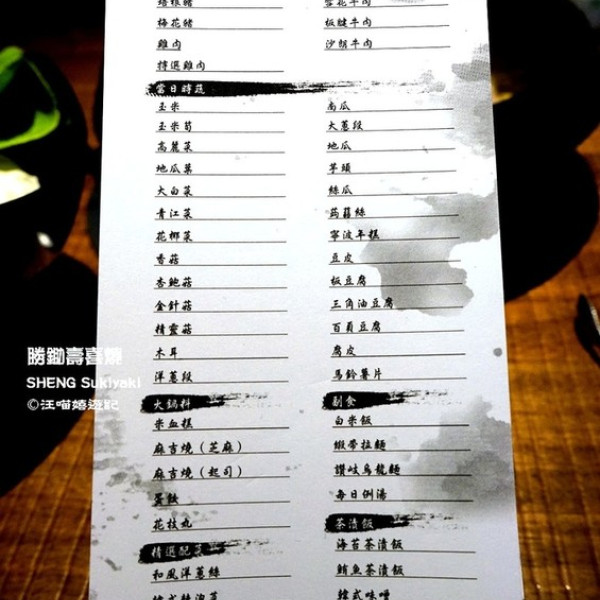 培根豬
梅花豬
雞肉
特選雞肉
雪花牛肉
板腱牛肉
沙朗牛肉
當日時蔬
玉米
玉米筍
高麗菜
地瓜葉
大白菜
青江菜
花椰菜
香菇
杏鮑菇
金針菇
精靈菇
木耳
洋蔥段
南瓜
大蔥段
地瓜
芋頭
絲瓜
蒟蒻絲
寧波年糕
豆皮
板豆腐
三角油豆腐
百頁豆腐
腐皮
馬鈴薯片
火鍋料
米血糕
麻吉燒（芝麻）
麻吉燒（起司）
蛋餃
花枝丸
精選配菜
和風洋蔥絲
韓式辣泡菜
副食
白米飯
緞帶拉麵
讚岐烏龍麵
每日例湯
茶漬飯
海苔茶漬飯
鮪魚茶漬飯
韓式味噌
勝鋤壽喜燒
SHENG Sukiyaki
©汪喵嬉遊記